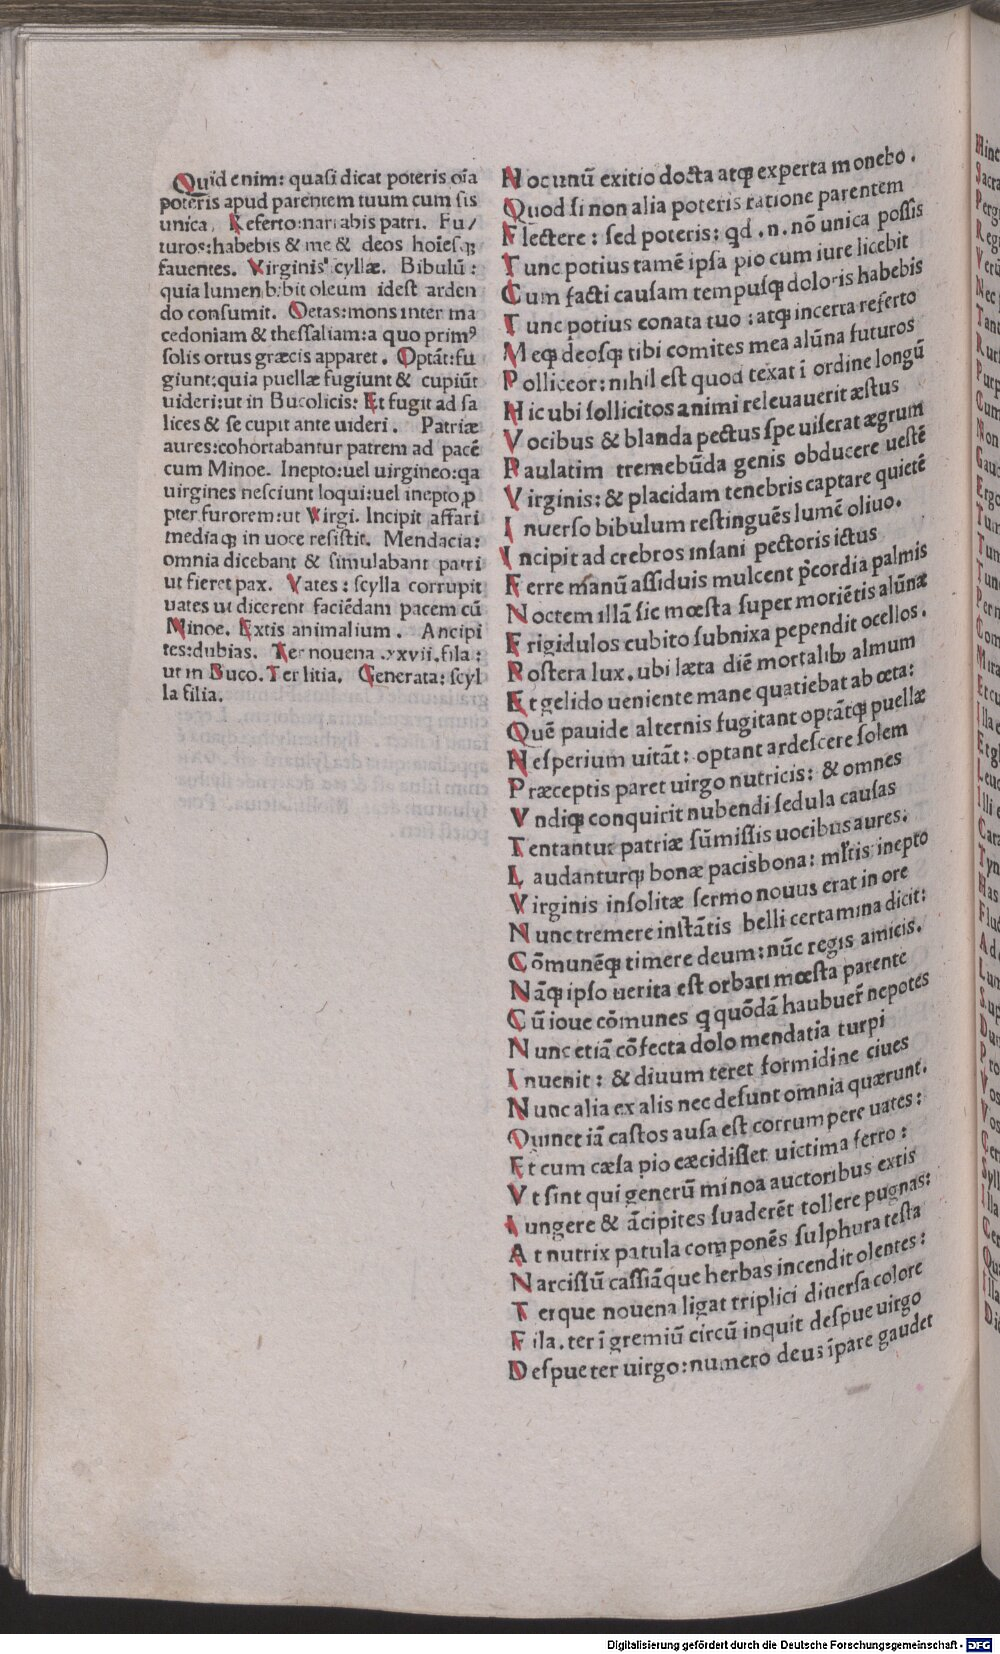 Quid enim: quasi dicat poteris oīa
poteris apud parentem tuum cum sis
unica, Referto:narrabis patri. Fu/
turos:habebis & me & deos hoiesq;
fauentes. Virginis' cyllæ. Bibulū:
quia lumen bibit oleum idest arden
do consumit. Oetas:mons inter ma
cedoniam & thessaliam:a quo primꝰ
solis ortus græcis apparet. Optāt:fu
giunt:quia puellæ fugiunt & cupiūt
uideri:ut in Bucolicis: Et fugit ad sa
lices & se cupit ante uideri. Patriæ
aures:cohortabantur patrem ad pacē
cum Minoe. Inepto:uel uirgineo:qa
uirgines nesciunt loqui:uel inepto,p
pter furorem:ut Virgi. Incipit affari
mediaq; in uoce resistit. Mendacia:
omnia dicebant & simulabant patri
ut fieret pax. Vates: scylla corrupit
uates ut dicerent faciēdam pacem cū
Minoe. Extis animalium. Ancipi
tes:dubias. Ter nouena .xxvii.fila:
ut in Buco. Ter litia. Generata: scyl
la filia.
Hoc unū exitio docta atq; experta monebo.
Quod si non alia poteris ratione parentem
Flectere: sed poteris: qd .n. nō unica possis
Tunc potius tamē ipsa pio cum iure licebit
Cum facti causam tempusq; doloris habebis
Tunc potius conata tuo: atq; incerta referto
Meq; deosq; tibi comites mea alūna futuros
Polliceor: nihil est quod texat ī ordine longū
Hic ubi sollicitos animi releuauerit æstus
Vocibus & blanda pectus spe uiserat ægrum
Paulatim tremebūda genis obducere uestē
Virginis: & placidam tenebris captare quietē
Inuerso bibulum restinguēs lumē oliuo.
Incipit ad crebros insani pectoris ictus
Ferre manū assiduis mulcent p̄cordia palmis
Noctem illā sic mœsta super moriētis alūnæ
Frigidulos cubito subnixa pependit ocellos.
Postera lux. ubi læta diē mortalib; almum
Et gelido ueniente mane quatiebat ab œta:
Quē pauide alternis fugitant optātq; puellæ
Hesperium uitāt: optant ardescere solem
Præceptis paret uirgo nutricis: & omnes
Vndiq; conquirit nubendi sedula causas
Tentantur patriæ sūmissis uocibus aures:
Laudanturq; bonæ pacis bona: ml̄tis inepto
Virginis insolitæ sermo nouus erat in ore
Nunc tremere instātis belli certamina dicit:
Cōmunēq; timere deum: nūc regis amicis.
Nāq; ipso uerita est orbari mœsta parente
Cū ioue cōmunes q quōdā haubuer̄ nepotes
Nunc etiā cōfecta dolo mendatia turpi
Inuenit: & diuum teret formidine ciues
Nunc alia ex alis nec desunt omnia quærunt.
Quinet iā castos ausa est corrumpere uates:
Et cum cæsa pio cæcidisset uictima ferro:
Vt sint qui generū minoa auctoribus extis
Iungere & ācipites suaderēt tollere pugnas:
At nutrix patula componēs sulphura testa
Narcissū cassiāque herbas incendit olentes:
Terque nouena ligat triplici diuersa colore
Fila. ter ī gremiū circū inquit despue uirgo
Despue ter uirgo: numero deus īpare gaudet
Digitalisierung gefördert durch die Deutsche Forschungsgemeinschaft - DFG